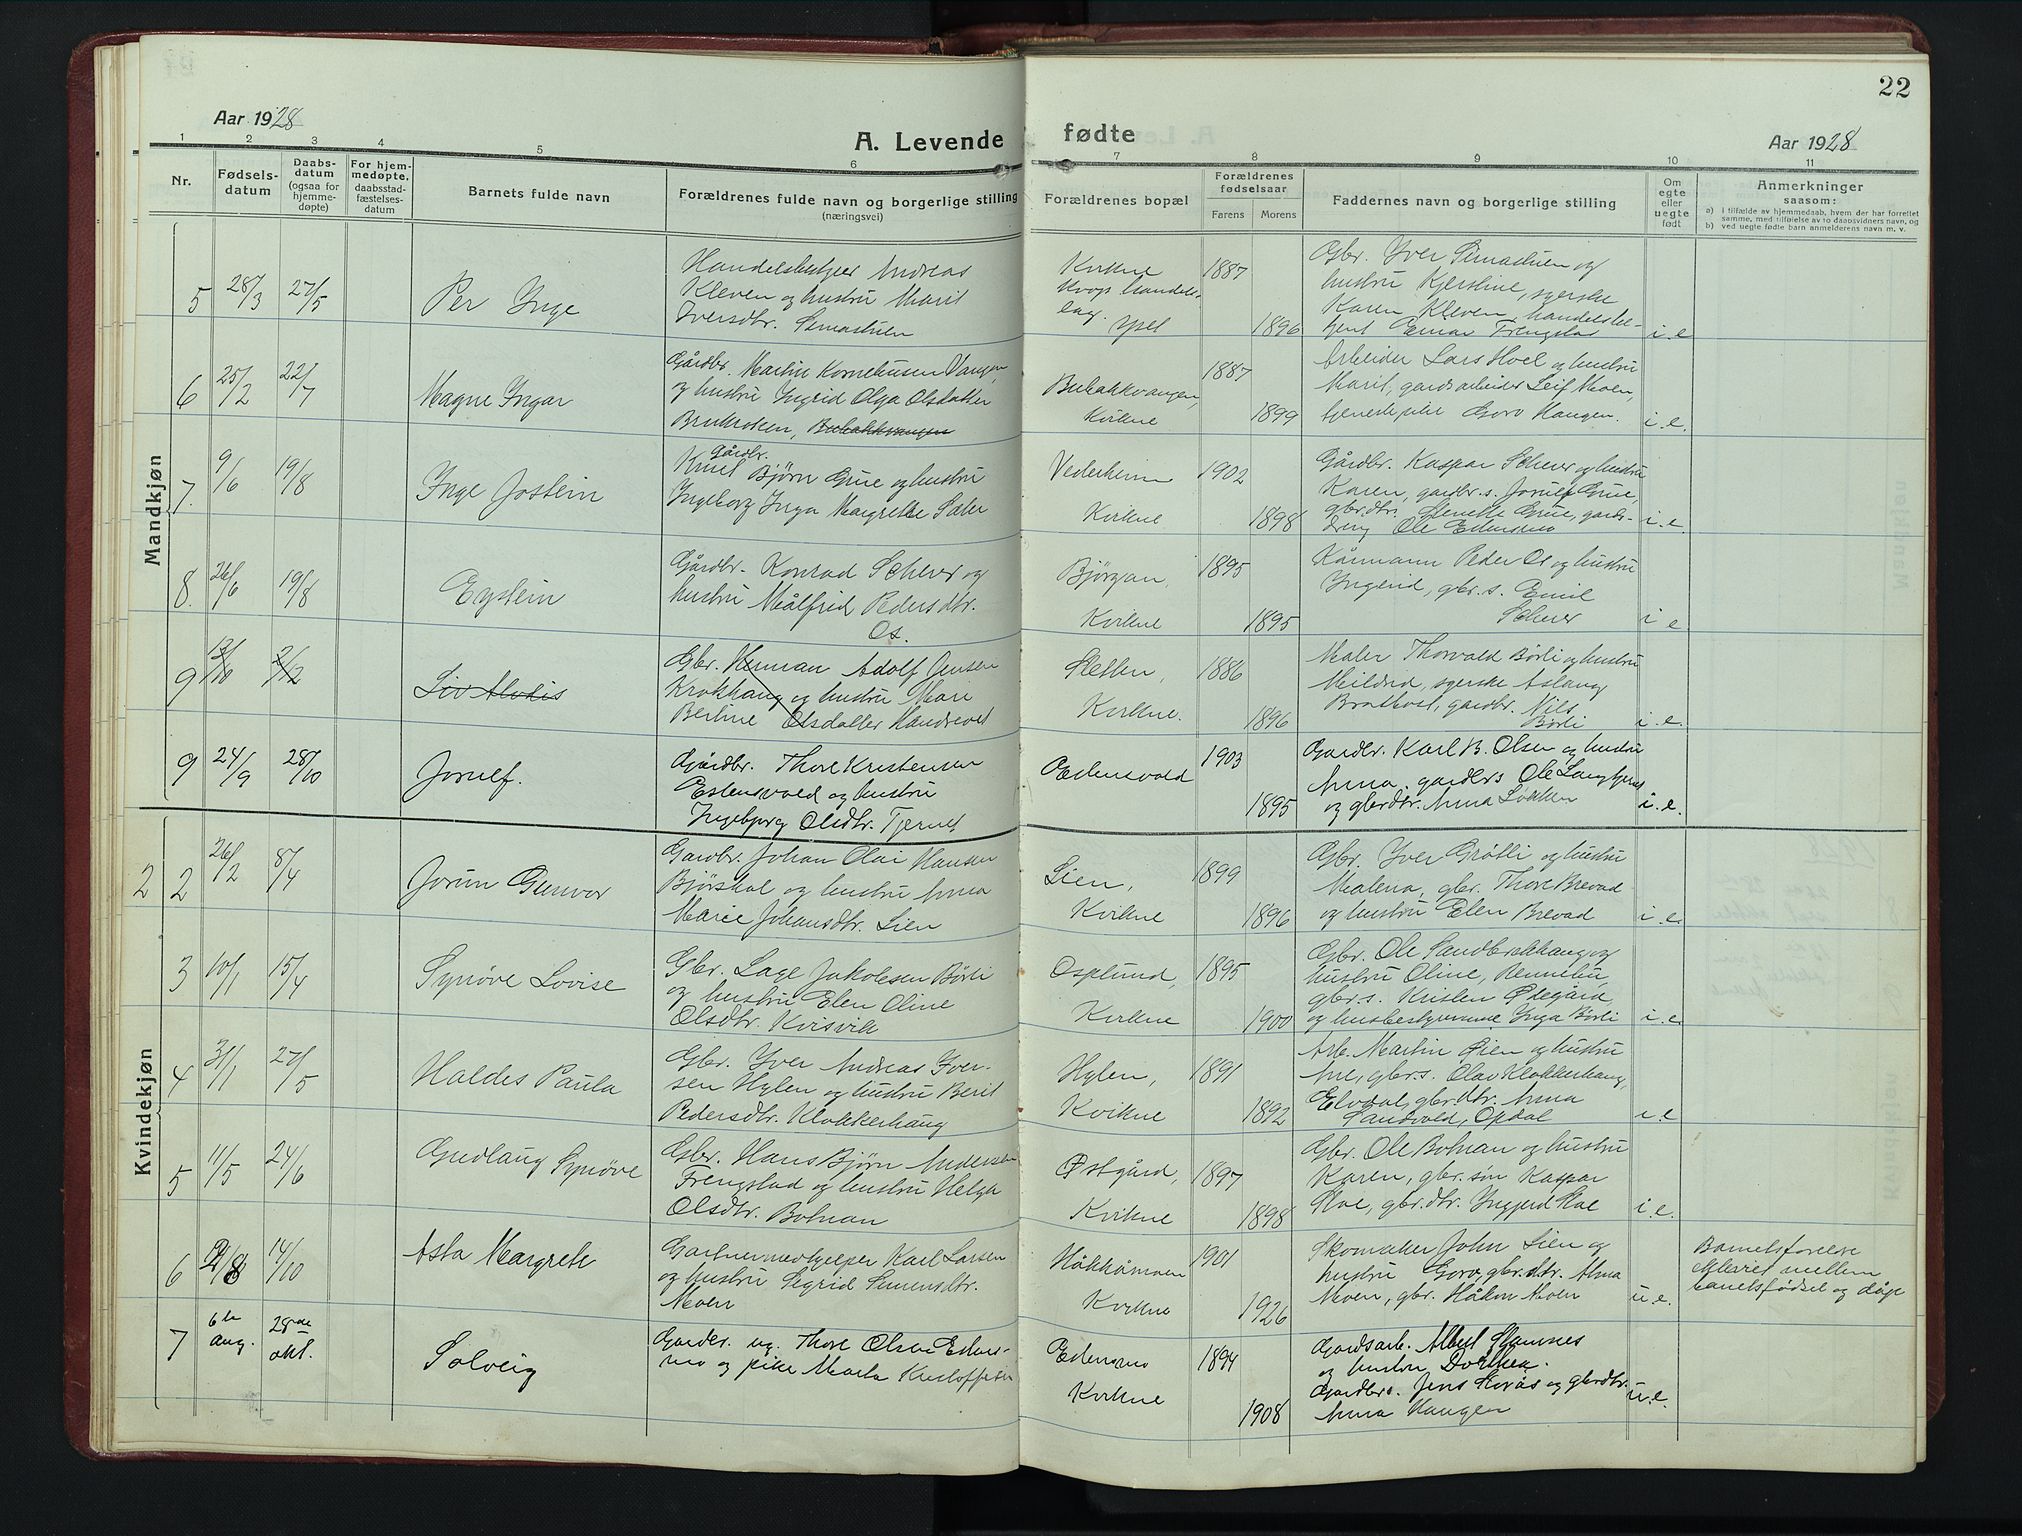 22
Aar 1928
A. Levende fødte
Aar 1928
1 2 3 4 5 6 7 8 9 10 11
Nr.
Fødsels-
datum
Daabs-
datum
(ogsaa for
hjemme-
døpte)
For hjem-
medøpte,
daabsstad-
fæstelses-
datum
Barnets fulde navn
Forældrenes fulde navn og borgerlige stilling
(næringsvei)
Forældrenes bopæl
Forældrenes
fødselsaar
Farens Morens
Faddernes navn og borgerlige stilling
Om
egte
eller
uegte
født
Anmerkninger
saasom:
a) i tilfælde av hjemmedaab, hvem der har forrettet
samme, med tilføielse av to daabsvidners navn, og
b) ved uegte fødte barn anmelderens navn m. v.
Mandkjøn
5 28/3 27/5 Per Inge
Andreas
Kleven og hustru Marit
Iversdtr.
Kvikne
1887
1896
Gbr. Iver
hustru Kjerstine, syerske
Karen Kleven, handelsbe-
tjent Einar Frengstad
i. e
6 25/2 22/7 Magne Ingar
Gårdbr. Martin Korneliusen Vangen,
og hustru Ingrid Olga Olsdatter
Kvikne
1887
1899
Arbeider Lars Hoel og hustru
Marit, gardsarbeider Leif Moen,
tjenestepike Goro Haugen.
i. e.
7. 9/6 19/8 Inge Jostein
Gårdbr.
Knut Bjørn Grue og hustru
Ingeborg Inga Margrethe Sæter
Vederheim
Kvikne
1902
1898
Gårdbr. Kaspar Scherer og hustru
Karen, gardbr. s. Jorulf Grue,
gbr.dtr. Grue, gards-
dreng Ole Estensmo
i. e
8. 26/6 19/8 Eystein
Gårdbr. Konrad Scherer og
hustru Målfrid Pedersdtr.
Os.
Bjørgan,
Kvikne
1895
1895
Kårmann Peder Os og hustru
Ingerid, gbr. s. Emil
Scherer
i e
9 2/12 Liv Alvdis
Gbr. Herman Adolf Jensen
Krokhaug og hustru Mari
Berline Olsdatter
Sletten,
Kvikne.
1886
1896
Maler Thorvald Børli og hustru
Mildrid, syerske Aslaug
Brattset, gardbr. Nils
Børli
i. e.
9 24/9 28/10 Jorulf.
Gårdbr. Thore Kristensen
Estensvold og hustru
Ingebjørg Olsdtr. Tjernet
Estensvold
1903
1895
Gardbr. Karl B. Olsen og hustru
Anna, gardbrs Ole
og gbrdtr. Anna Løkken
i. e.
Kvindekjøn
2 2 26/2 8/4 Jorun Gunvor
Gardbr. Johan Olai Hansen
og hustru Anna
Marie Johansdtr. Lien
Lien,
Kvikne
1899
1896
Gbr. Iver Grøtli og hustru
Malena, gbr. Thore Brevad
og hustru Elen Brevad
i. e
3 10/1 15/4 Synøve Lovise
Gbr. Lage Jakobsen Børli
og hustru Elen Oline
Olsdtr. Kvisvik
Osplund,
Kvikne
1895
1900
Gbr. Ole Sandbrekkhaug og
hustru Oline, Rennebu,
gbr. s. Kristen Ødegård
og husbestyrerinne Inga Børli
i. e.
4 31/1 27/5 Haldis Paula
Gbr. Iver Andreas Iver-
sen Hylen og hustru Berit
Pedersdtr. Klokkerhaug
Hylen,
Kvikne
1891
1892
Arb. Martin Lien og hustru
Ane, gbr. s. Olav Klokkerhaug,
Elvdal, gbr.dtr. Anna
Sandvold, Opdal
i. e
5 11/5 24/6 Gudlaug Synøve
Gbr. Hans Bjørn Andersen
Frengstad og hustru Helga
Olsdtr. Bolnan
Østgård,
Kvikne
1897
1898
Gbr. Ole Bolnan og hustru
Karen, gbr. søn Kaspar
Stoe, gbr.dtr. Ingjerd Stoe
i. e.
6 14/10 Asta Margrete
Gartnermedhjelper Karl Larsen
og hustru Sigrid Simensdtr.
Moen
Kvikne
1901
1926
Skomaker John Lien og
hustru Goro, gbr.dtr. Alma
Moen, gbr. Håkon Moen
u. e.
mellem
barnets fødsel og dåp
7 6te aug. 28de okt. Solveig
Gardbr. ug. Thore Olsen Estens-
mo og pike Marta Kristoffersen
Estensmo
Kvikne
1894
1908
Gårdsarb. Albert Stamnes
og hustru Dorthea.
Gårdbrs. Jens og gbrdtr.
Anna Haugen
u. e.